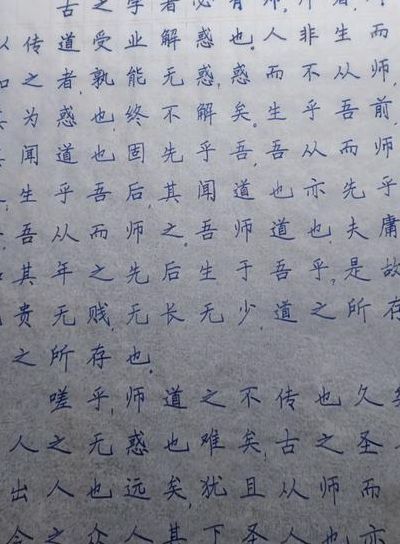 古之学者必有师,师者,
以传道受业解惑也。人非生而
知之者,孰能无惑,惑而不从师,
其为惑也,终不解矣。生乎吾前,
其闻道也固先乎吾,吾从而师
生乎吾后,其闻道也亦先乎
吾,吾从而师之。吾师道也,夫庸
知其年之先后生于吾乎,是故
无贵无贱,无长无少,道之所存
之所存也。
嗟乎,师道之不传也久矣
人之无惑也难矣,古之圣
出人也远矣,犹且从师而
今之众人,其下圣人也亦